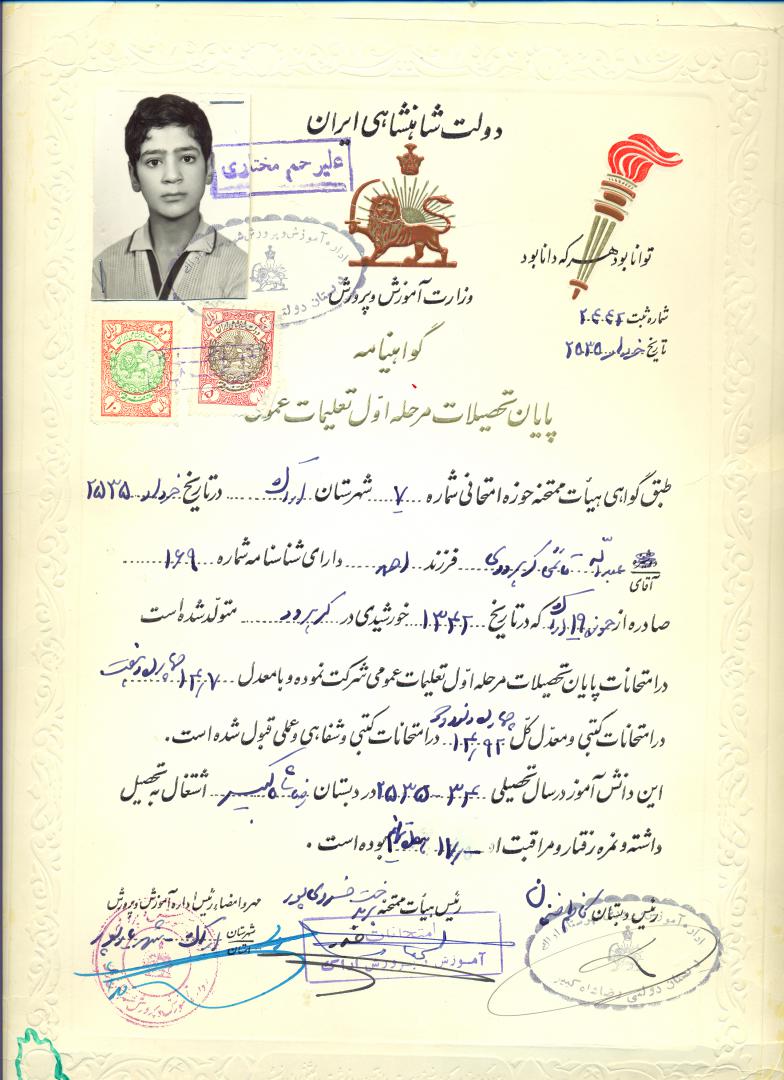 دولت شاهنشاهی ایران
علیرحم مختاری
توانا بود هر که دانا بود
وزارت آموزش و پرورش
شماره ثبت ۲۰۴۴۲
تاریخ خرداد ۲۵۳۵
گواهینامه
پایان تحصیلات مرحله اول تعلیمات عمومی
طبق گواهی هیأت ممتحنه حوزه امتحانی شماره ۷ شهرستان اراک در تاریخ خرداد ۲۵۳۵
آقای عبداله قائمی کرهرودی فرزند احمد دارای شناسنامه شماره ۱۶۹
صادره از حوزه ۱۹ اراک که در تاریخ ۱۳۴۲ خورشیدی در کرهرود متولد شده است
در امتحانات پایان تحصیلات مرحله اول تعلیمات عمومی شرکت نموده و با معدل ۱۴/۰۷
در امتحانات کتبی و معدل کل ۱۴/۹۲ در امتحانات کتبی و شفاهی و عملی قبول شده است.
این دانش آموز در سال تحصیلی ۳۴-۲۵۳۵ در دبستان رضاشاه کبیر اشتغال به تحصیل
داشته و نمره رفتار و مراقبت او ۱۷/۰۰ هفده تمام بوده است.
رئیس دبستان
رئیس هیأت ممتحنه
خسروی پور
مهر و امضاء رئیس اداره آموزش و پرورش
شهرستان اراک
استان
امتحانات
آموزش و پرورش اراک
اداره آموزش و پرورش شهرستان اراک
دبستان دولتی رضاشاه کبیر